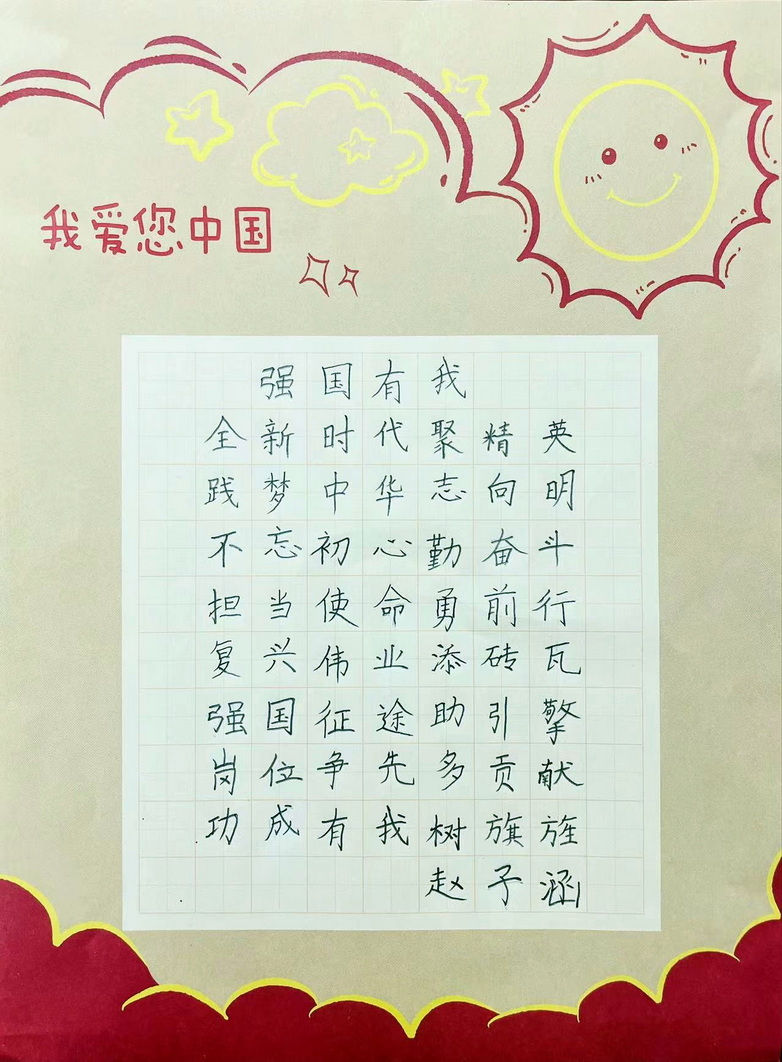 我爱您中国
强国有我
全新时代聚精英
践梦中华志向明
不忘初心勤奋斗
担当使命勇前行
复兴伟业添砖瓦
强国征途助引擎
岗位争先多贡献
功成有我树旗旌
赵子涵